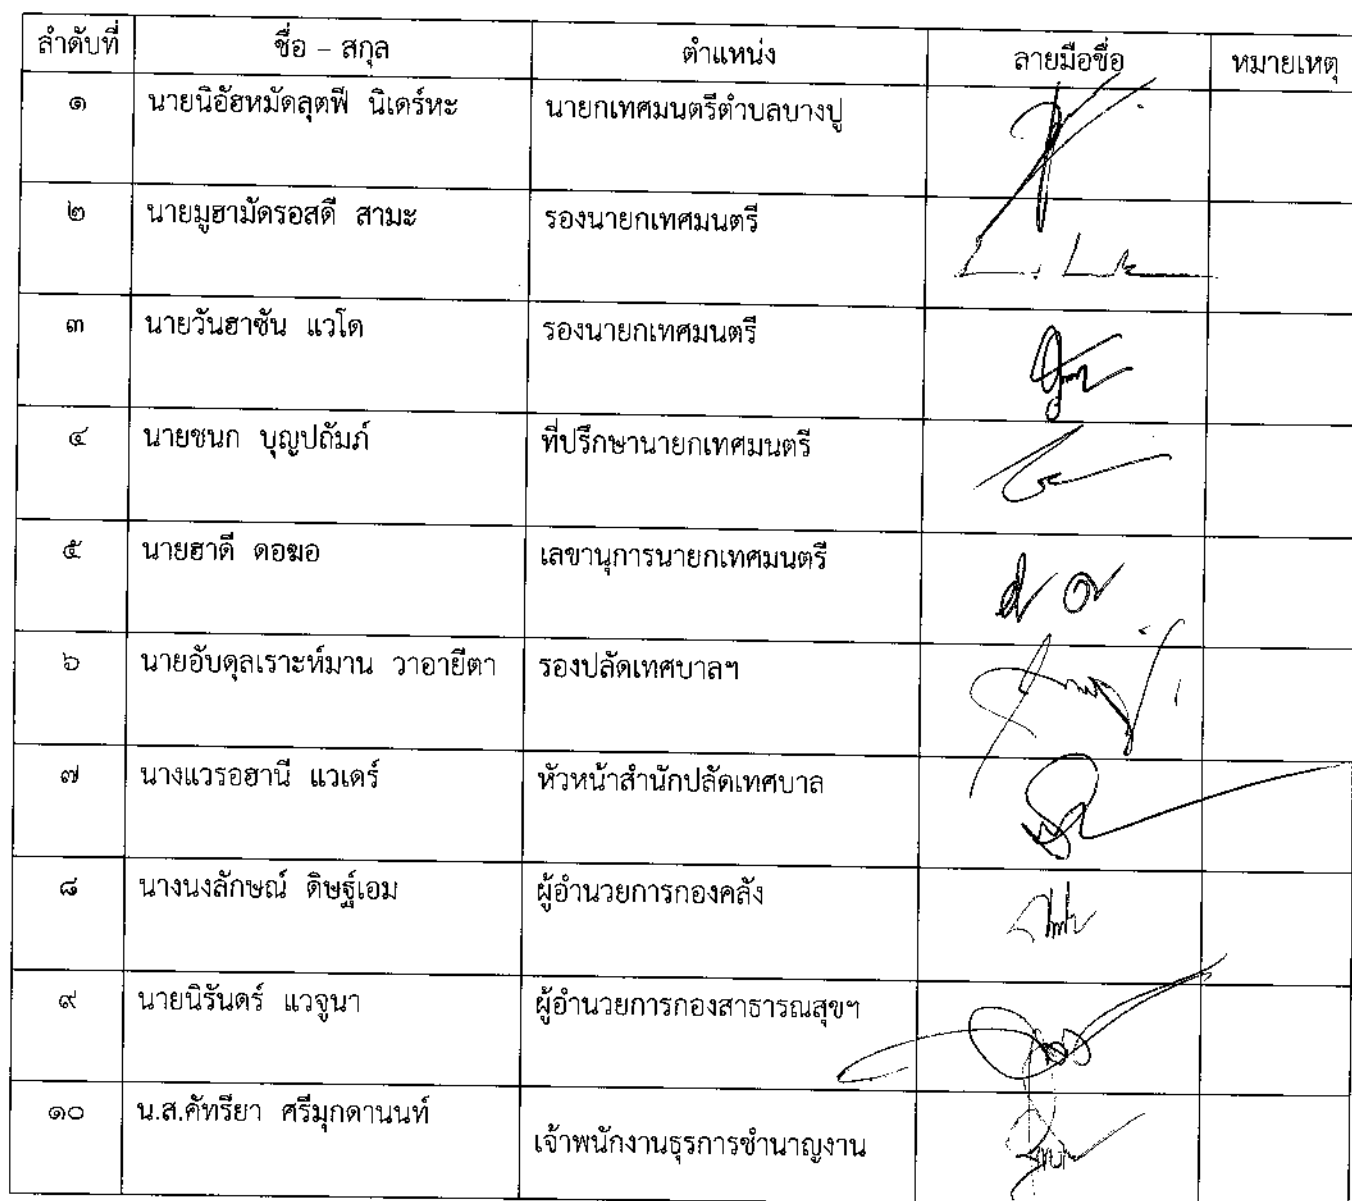 ลำดับที่ ชื่อ – สกุล ตำแหน่ง ลายมือชื่อ หมายเหตุ
๑ นายนิอัฮหมัดลุตฟี นิเดร์หะ นายกเทศมนตรีตำบลบางปู
๒ นายมูฮามัดรอสดี สามะ รองนายกเทศมนตรี
๓ นายวันฮาซัน แวโด รองนายกเทศมนตรี
๔ นายชนก บุญปถัมภ์ ที่ปรึกษานายกเทศมนตรี
๕ นายฮาดี ดอฆอ เลขานุการนายกเทศมนตรี
๖ นายอับดุลเราะห์มาน วาอายีตา รองปลัดเทศบาลฯ
๗ นางแวรอฮานี แวเดร์ หัวหน้าสำนักปลัดเทศบาล
๘ นางนงลักษณ์ ดิษฐ์เอม ผู้อำนวยการกองคลัง
๙ นายนิรันดร์ แวจูนา ผู้อำนวยการกองสาธารณสุขฯ
๑๐ น.ส.คัทรียา ศรีมุกดานนท์ เจ้าพนักงานธุรการชำนาญงาน